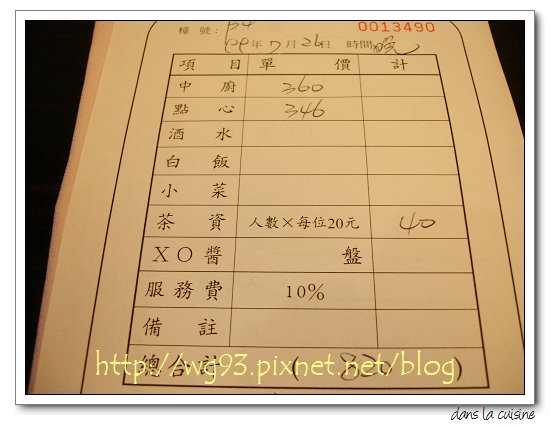 檯號: P4 0013490
99年7月26日 時間晚
項目 單價 計
中廚 360
點心 346
酒水
白飯
小菜
茶資 人數×每位20元 40
XO醬 盤
服務費 10%
備註
http://wg93.pixnet.net/blog
總合計 ( 820 )
dans la cuisine